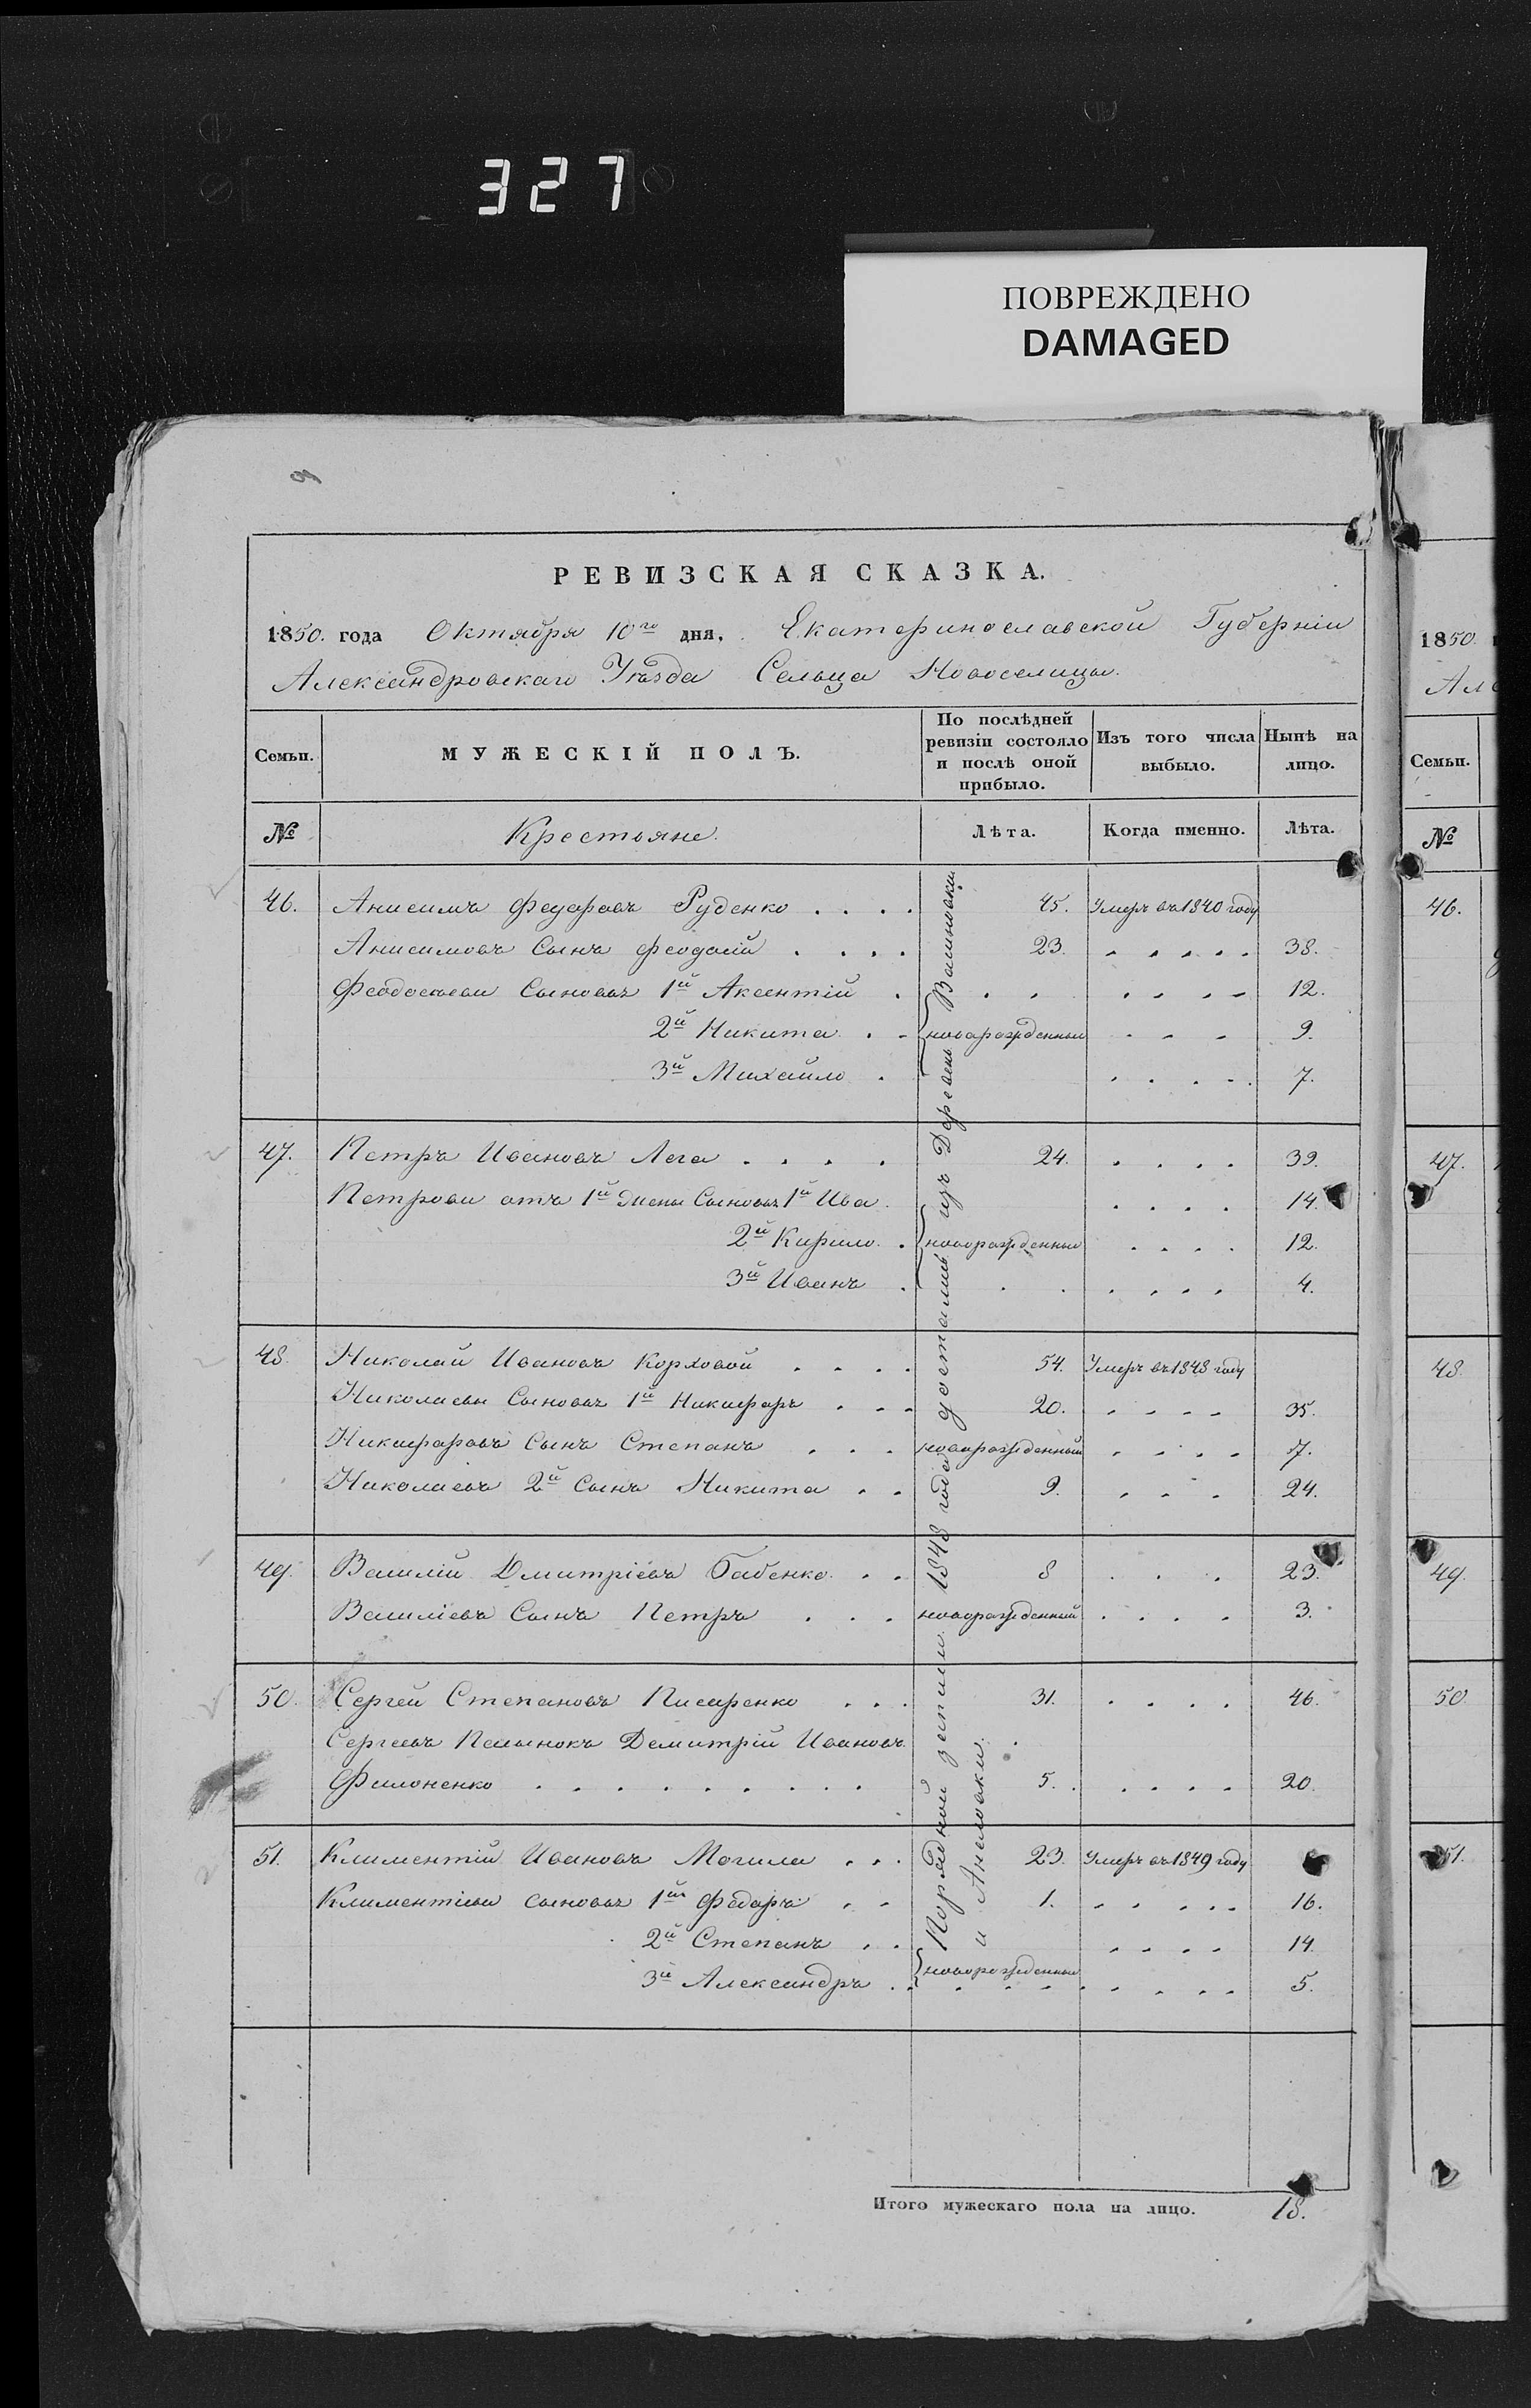 327
ПОВРЕЖДЕНО
DAMAGED
РЕВИЗСКАЯ СКАЗКА.
1850. года Октября 10го дня. Екатеринославской Губерніи
Александровскаго Уѣзда Сельца Новоселицы.
Семьи.
МУЖЕСКІЙ ПОЛЪ.
По послѣдней ревизіи состояло и послѣ оной прибыло.
Изъ того числа выбыло.
Нынѣ на лицо.
№ Крестьяне. Лѣта. Когда именно. Лѣта.
46. Анисимъ Федоровъ Руденко . . . . 45. Умеръ въ 1840 году
Анисимовъ Сынъ . . . . 23. . . . . . 38.
Феодосіевы Сыновья 1й Аксентій . . . . . . . 12.
2й Никита . . новорожденныи . . . 9.
3й Михайло . . . . . . 7.
47. Петръ Ивановъ Лега . . . . 24. . . . . 39.
Петровы отъ 1й Жены Сыновья 1й . . . . 14.
2й Кирило . новорожденныи . . . . 12.
3й Иванъ . . . . . . . 4.
48. Николай Ивановъ Корховой . . . . 54. Умеръ въ 1848 году
Николаевы Сыновья 1й Никифоръ . . . 20. . . . . 35.
Никифоровъ Сынъ Степанъ . . . новорожденный . . . . 7.
Николаевъ 2й Сынъ Никита . . 9. . . . 24.
49. Василій Дмитріевъ Бабенко . . 8 . . . 23.
Василіевъ Сынъ Петръ . . . новорожденный . . . . 3.
50. Сергей Степановъ Писаренко . . . 31. . . . . 46.
Сергеевъ Пасынокъ Демитрій Ивановъ
Филоненко . . . . . . . . 5. . . . . 20.
51. Климентій Ивановъ Могила . . . 23. Умеръ въ 1849 году
Климентіевы сыновья 1й Федоръ . . 1. . . . . . 16.
2й Степанъ . . . . . . 14.
3й Александръ . . новорожденныи . . . . 5.
1848 года достались изъ Деревень
и
Итого мужескаго пола на лицо. 18.
1850
Але
Семьи.
№
46.
47.
48.
49.
50.
51.